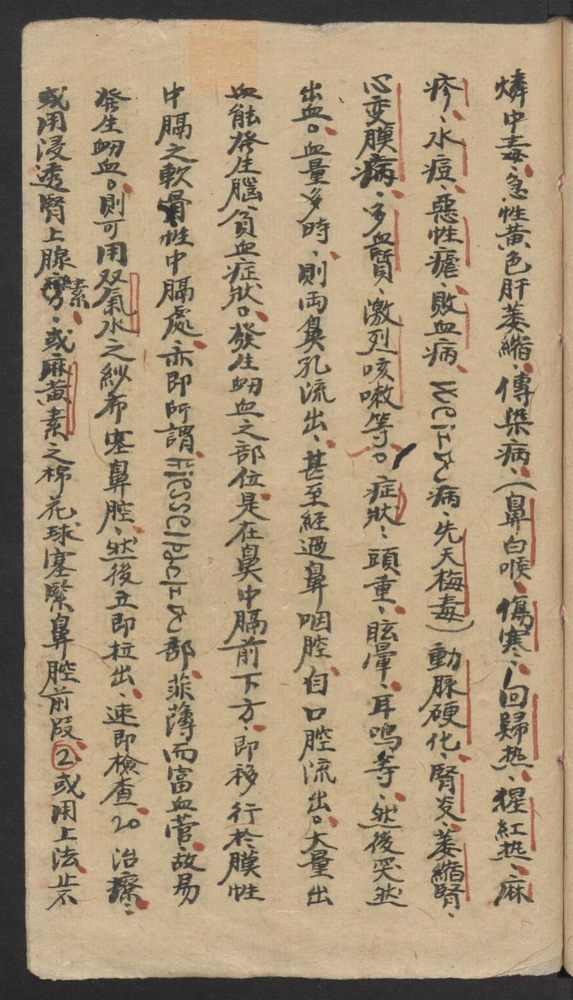 燐中毒、急性黄色肝萎縮、傳染病、(鼻白喉、傷寒、回歸热、猩紅热、麻
疹、水痘、惡性瘧、敗血病、Weil氏病、先天梅毒)動脉硬化、腎炎、萎縮腎、
心变膜病、多血質、激烈咳嗽等。症狀:頭重、眩暈、耳鳴等、然後突然
出血。血量多時、則両鼻孔流出、甚至経過鼻咽腔、自口腔流出。大量出
血能發生腦貧血症狀。發生衂血之部位是在鼻中膈前下方、即移行於膜性
中膈之軟骨性中膈處、亦即所謂Kiesselbach氏部、菲薄而富血菅、故易
發生衂血。則可用双氧水之紗布塞鼻腔、然後立即拉出、速即檢查。治療:
或用浸透腎上腺素、或麻黄素之棉花球塞緊鼻腔前段②或用上法不